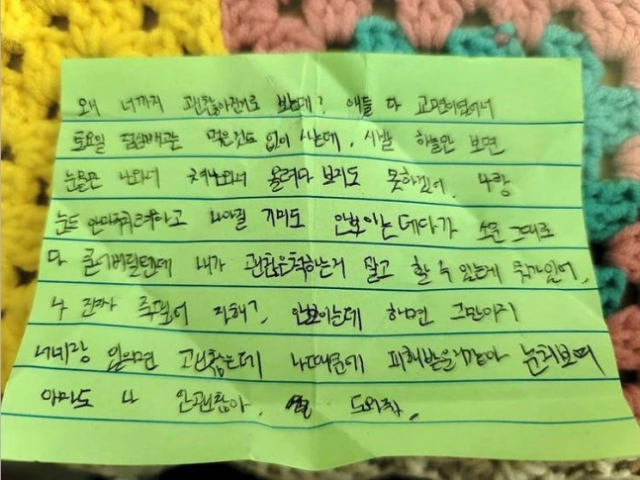 왜 너까지 괜찮아진대로 보는데? 애들 다 교면이였어서
토요일 점심빼곤 먹은것도 없이 사는데, 시발 하늘만 보면
눈물만 나와서 쳐나와서 올려다 보지도 못하겠어. 나랑
눈도 안마주치려하고 나아질 기미도 안보이는데다가 소문 그대로
다 믿어버릴텐데 내가 괜찮은척하는거 말고 할 수 있는게
나 진짜 죽고싶어 자해?, 안보이는데 하면 그만이지
너네랑 있으면 괜찮은데 나때문에 피해받을거같아 눈치보며
아마도 나 안괜찮아. 도와줘.